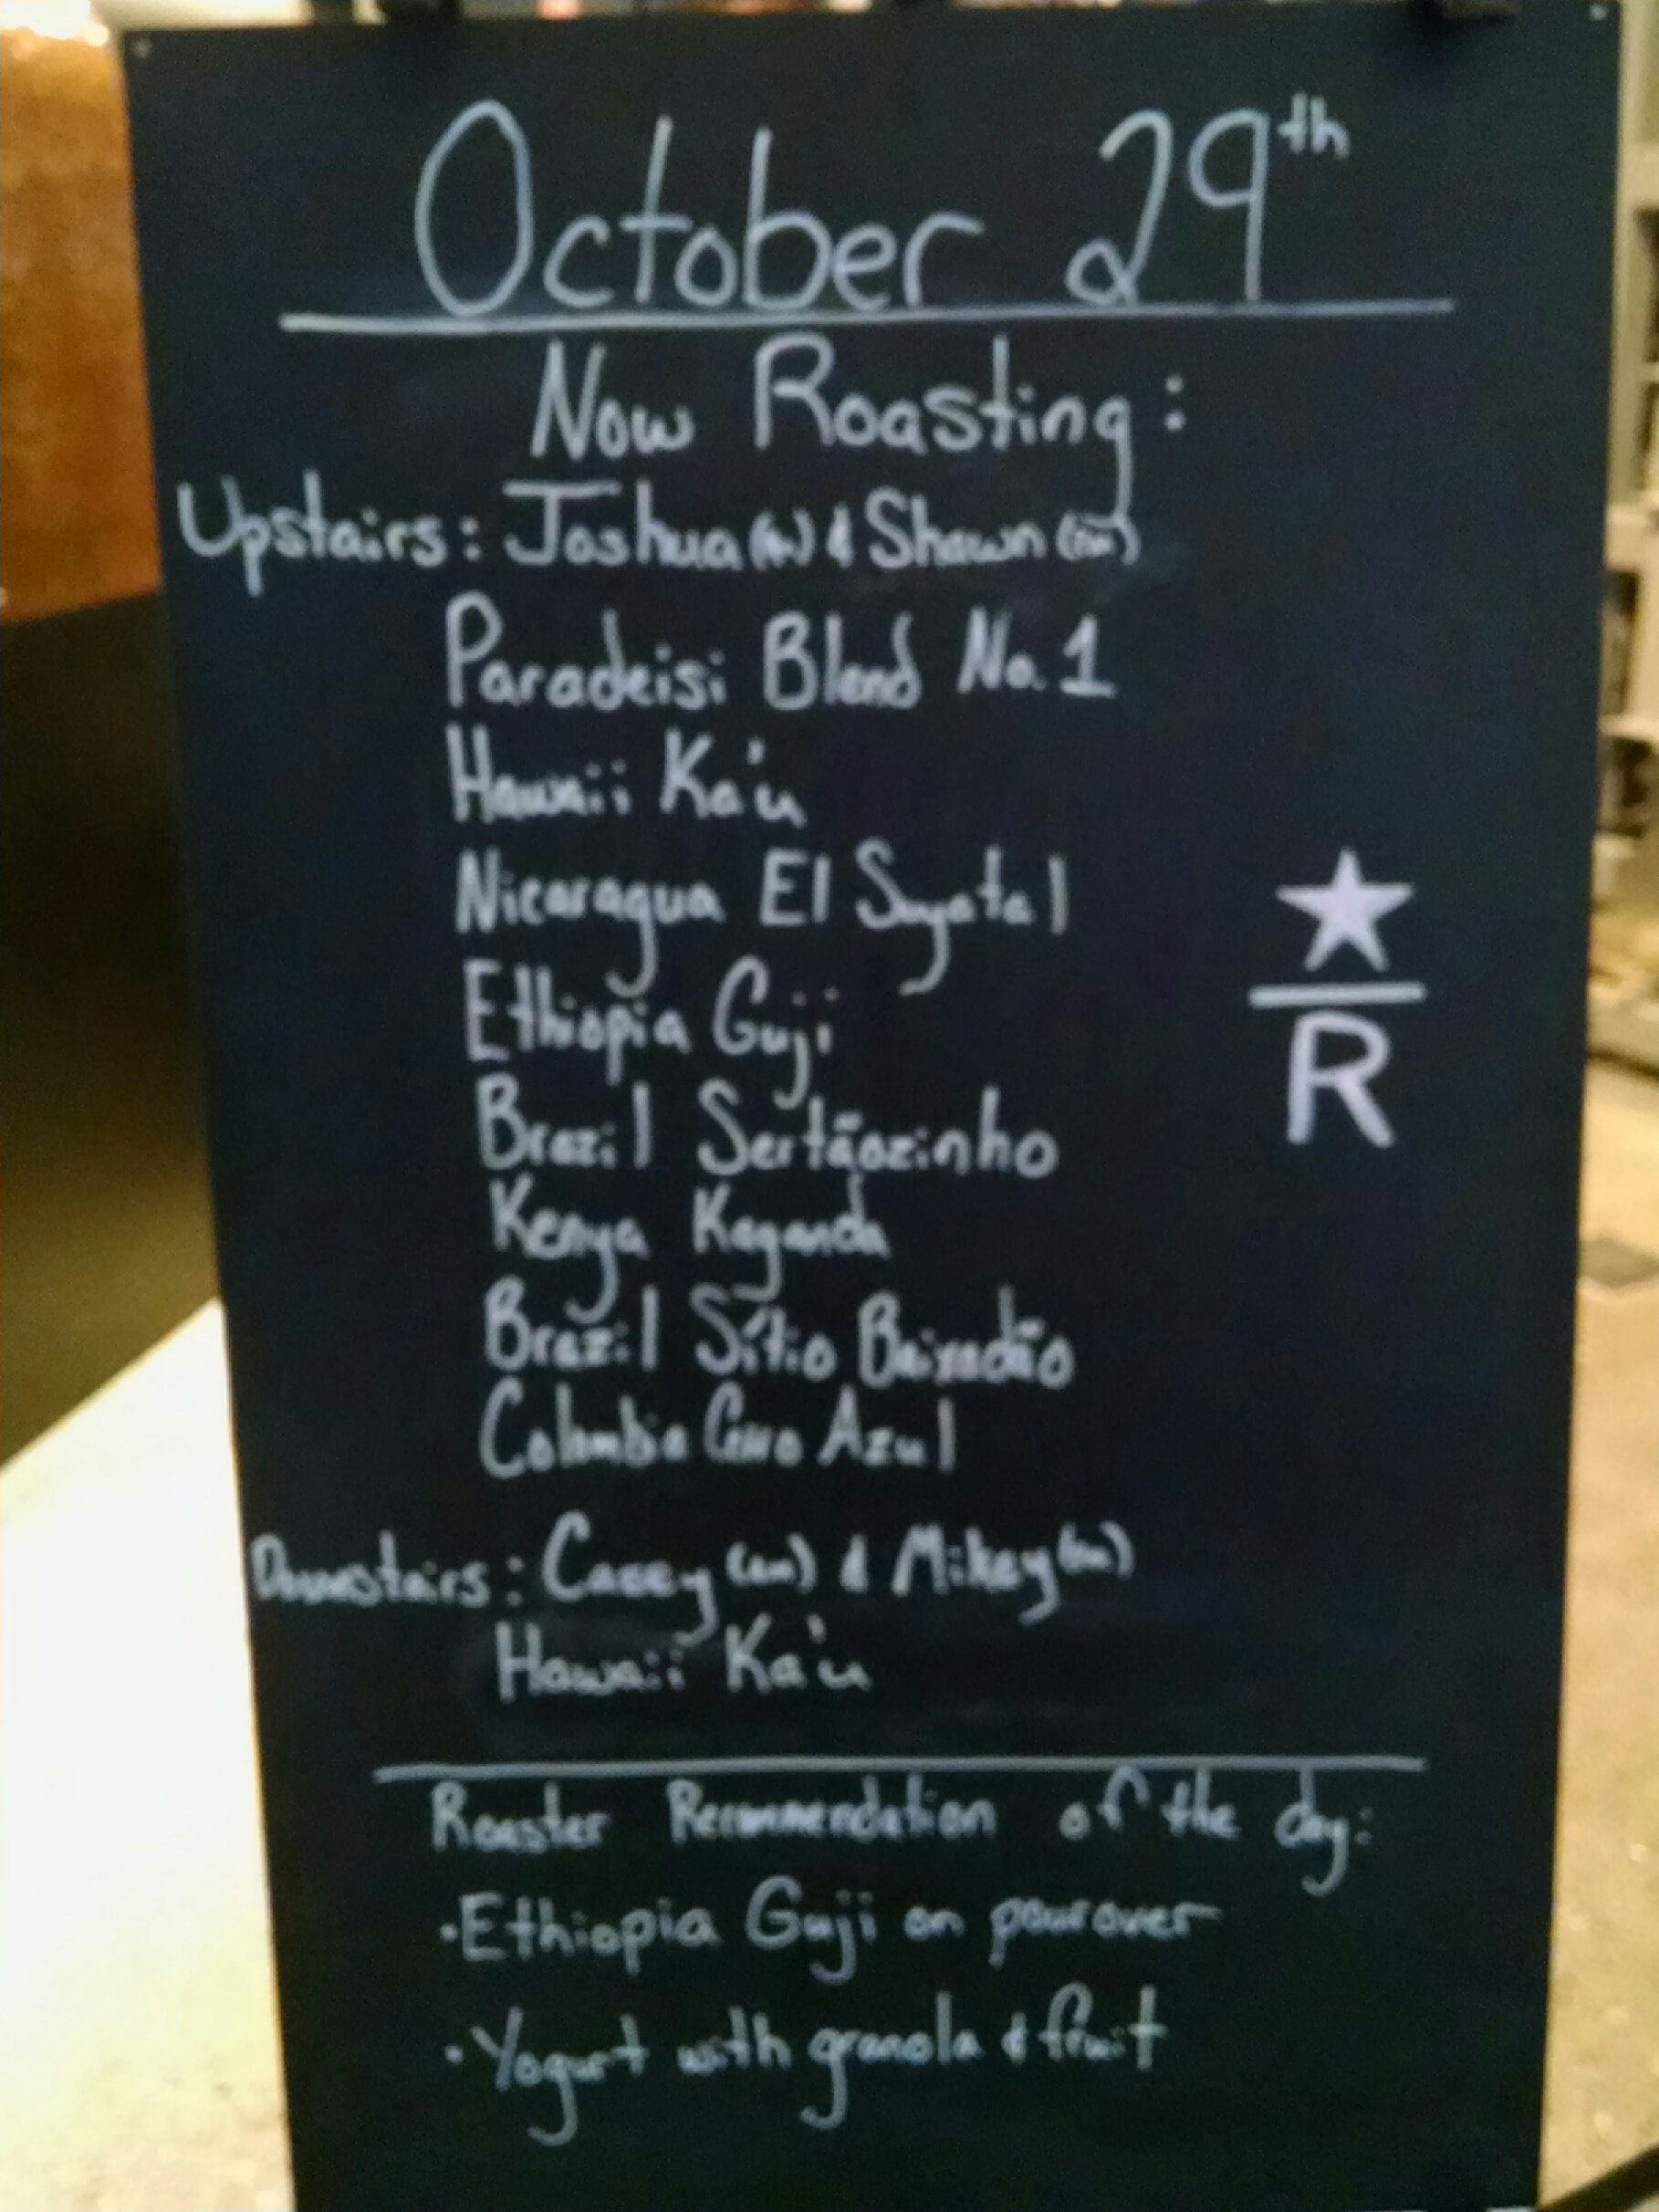 October 29th
Now Roasting:
Upstairs: Joshua & Shawn
Paradeisi Blend No. 1
Hawaii Ka'u
Nicaragua El Suyatal
Ethiopia Guji
Brazil Sertãozinho
Kenya Kaganda
Brazil Sítio Baixadão
Colombia Cerro Azul
R
Downstairs: Casey & Mikey
Hawaii Ka'u
Roaster Recommendation of the day:
·Ethiopia Guji on pourover
·Yogurt with granola & fruit